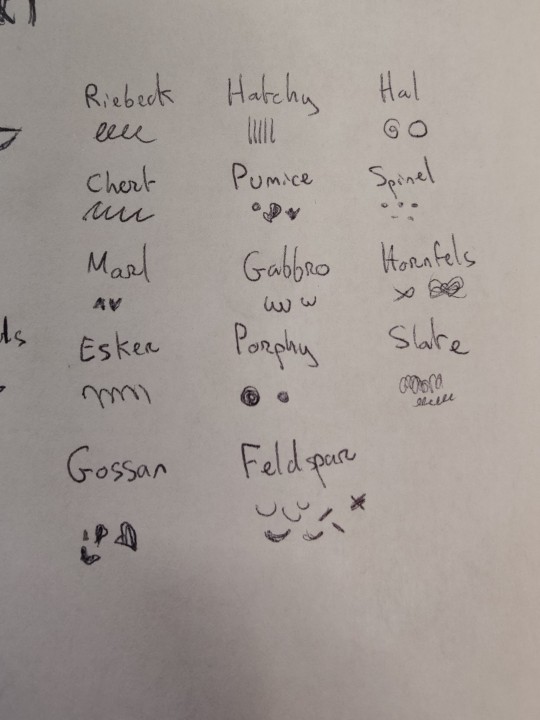 Riebeck Hatchy Hal
Chert Pumice Spinel
Marl Gabbro Hornfels
Esker Porphy Slate
Gossan Feldspar